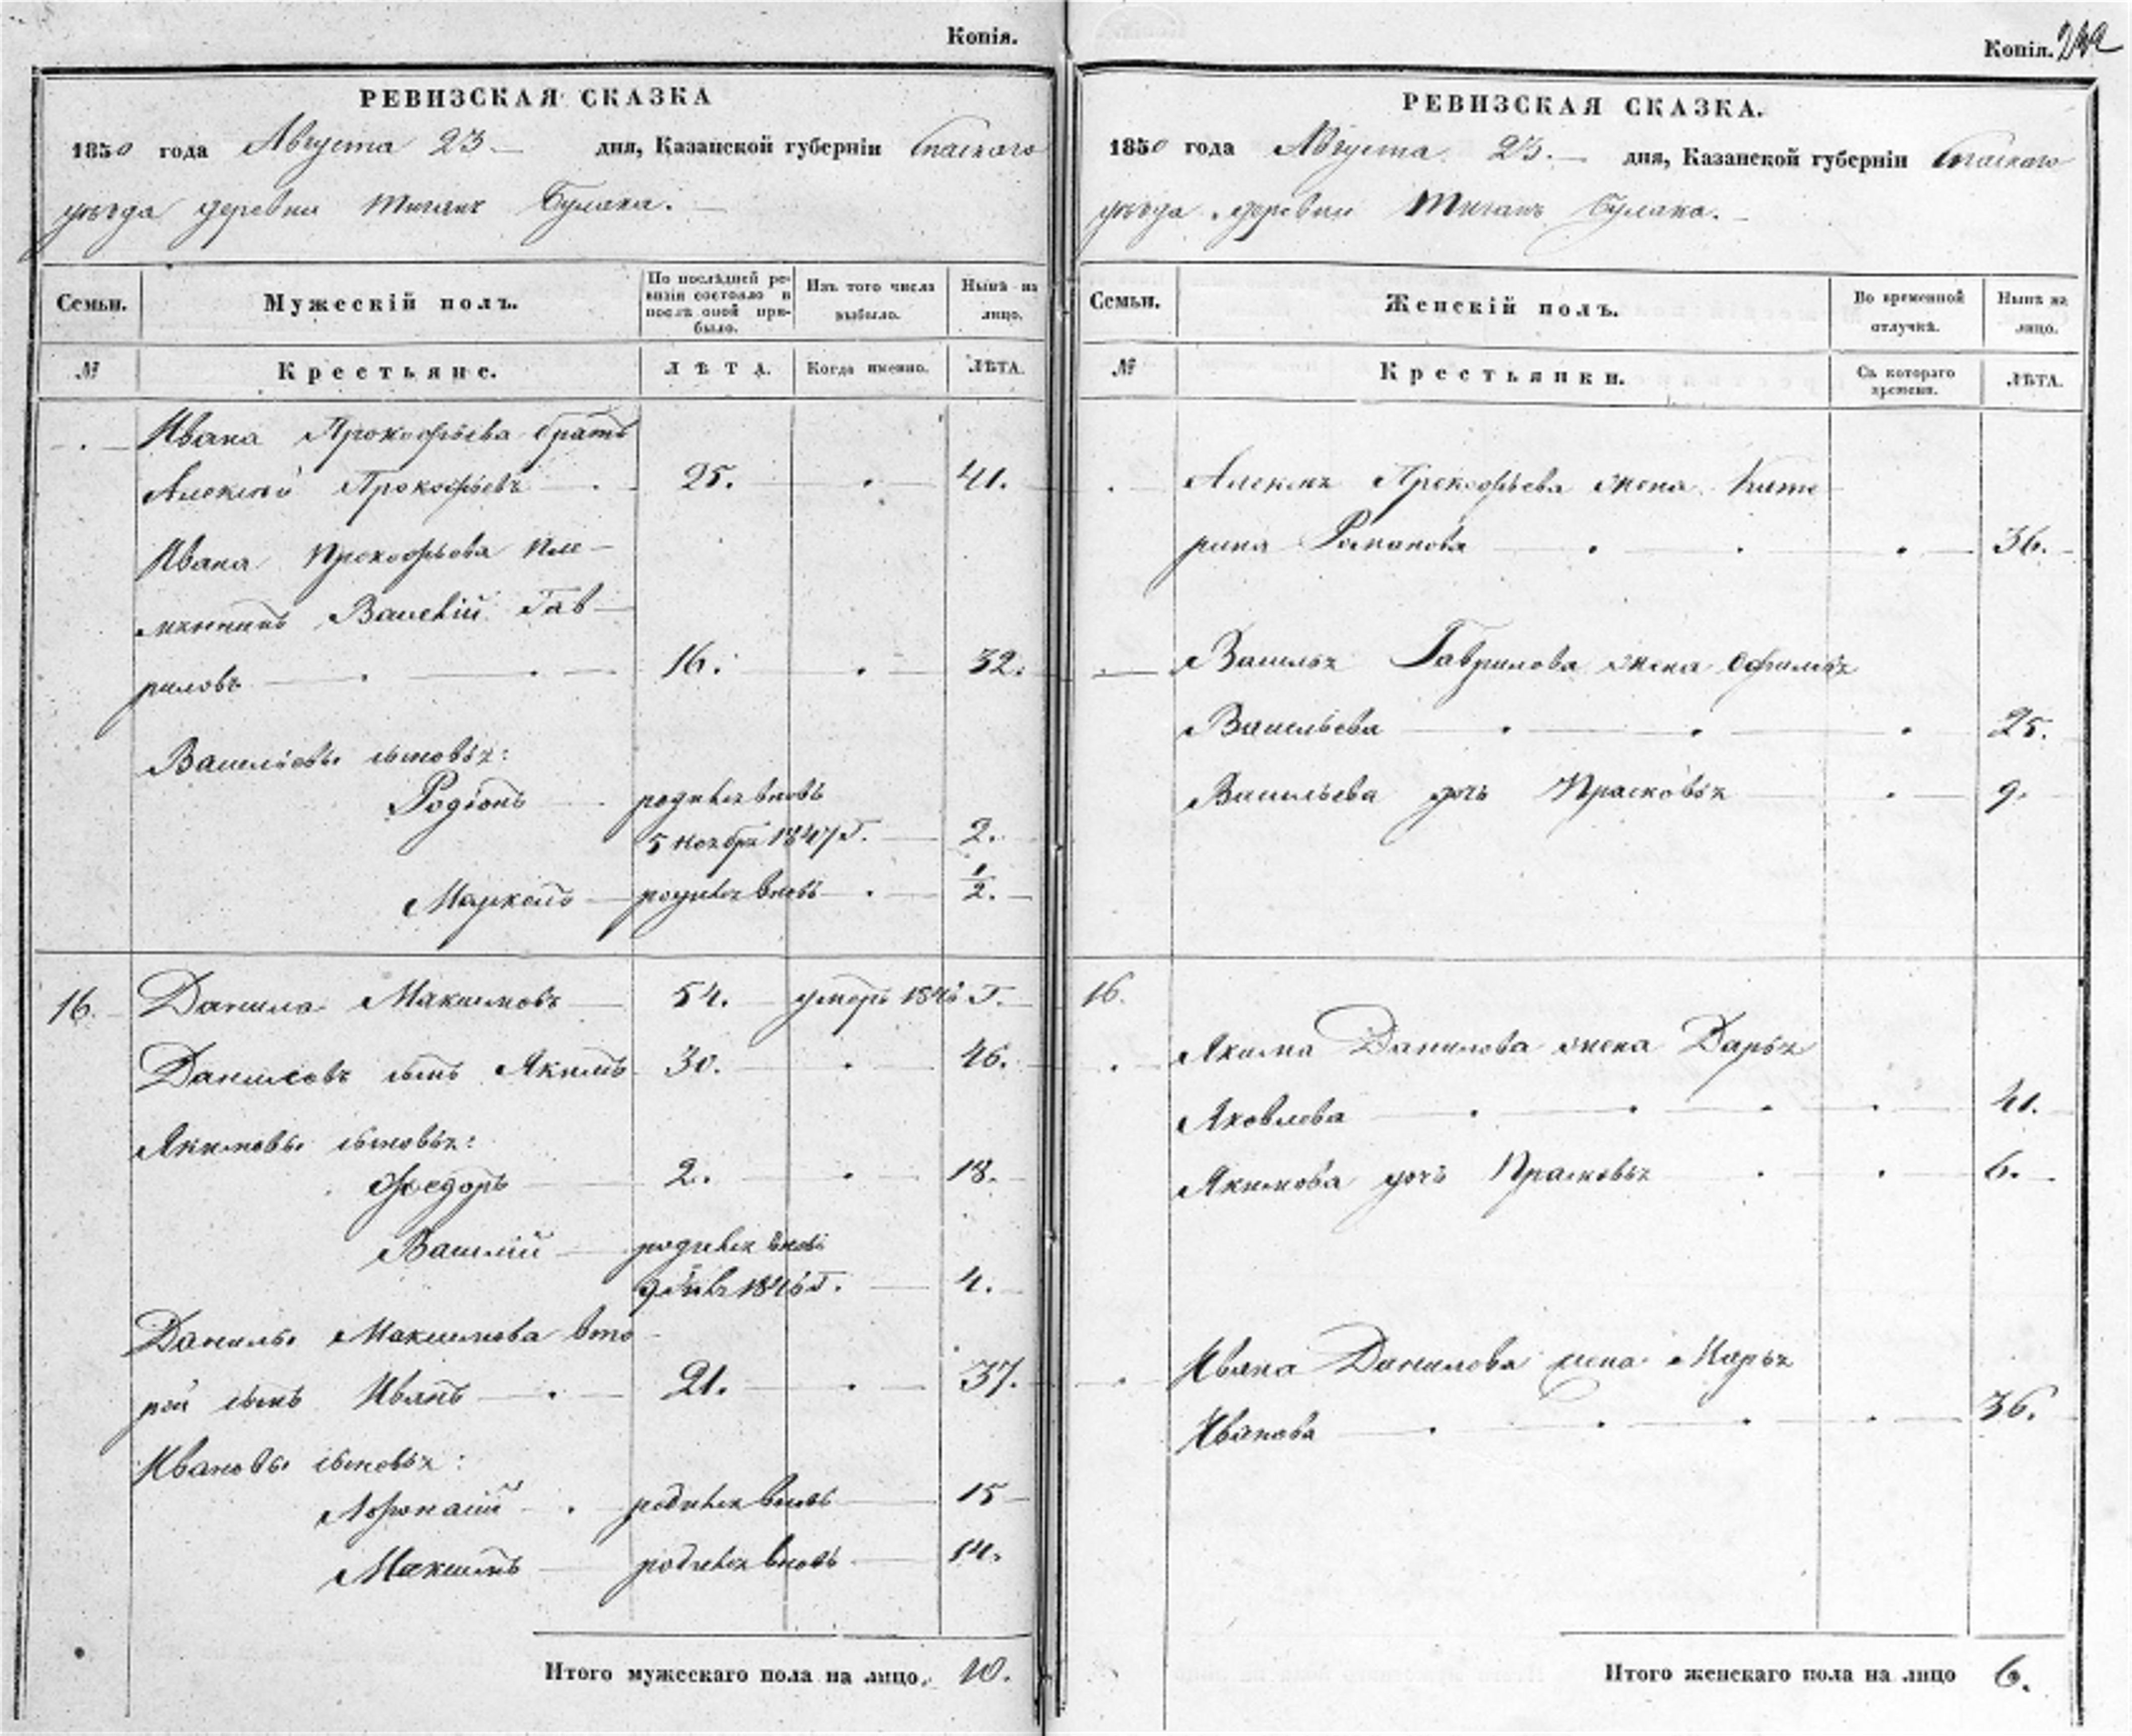 Копія.
РЕВИЗСКАЯ СКАЗКА
1850 года Августа 23 дня, Казанской губерніи Спаскаго
уѣзда деревни Тиганъ Булака.
Семьи.
Мужескій полъ.
По послѣдней ре-
визіи состояло и
послѣ оной при-
было.
Изъ того числа
выбыло.
Нынѣ на
лицо.
№
Крестьяне.
ЛѢТА.
Когда именно.
ЛѢТА.
Ивана Прокофьева братъ
Алексѣй Прокофьевъ 25. 41.
Ивана Прокофьева пле-
мянникъ Василій Гав-
риловъ 16. 32.
Васильевы сыновья:
Родіонъ родился вновь
5 ноября 1847 г. 2.
Маркелъ родился вновь 1/2.
16. Данила Максимовъ 54. умеръ 1846 г.
Даниловъ сынъ Якимъ 30. 46.
Якимовы сыновья:
Федоръ 2. 18.
Василій родился вновь
1846 г. 4.
Данилы Максимова вто-
рой сынъ Иванъ 21. 37.
Ивановы сыновья:
Афонасій родился вновь 15
Максимъ родился вновь 14.
Итого мужескаго пола на лицо. 10.
Копія.
РЕВИЗСКАЯ СКАЗКА.
1850 года Августа 23. дня, Казанской губерніи Спаскаго
уѣзда деревни Тиганъ Булака.
Семьи.
Женскій полъ.
Во временной
отлучкѣ.
Нынѣ на
лицо.
№
Крестьянки.
Съ котораго
времени.
ЛѢТА.
Алексѣя Прокофьева жена Кате
рина Романова 36.
Василья Гаврилова жена Офимья
Васильева 25.
Васильева дочь Прасковья 9.
16.
Якима Данилова жена Дарья
Яковлева 41.
Якимова дочь Прасковья 6.
Ивана Данилова жена Марья
Иванова 36.
Итого женскаго пола на лицо 6.